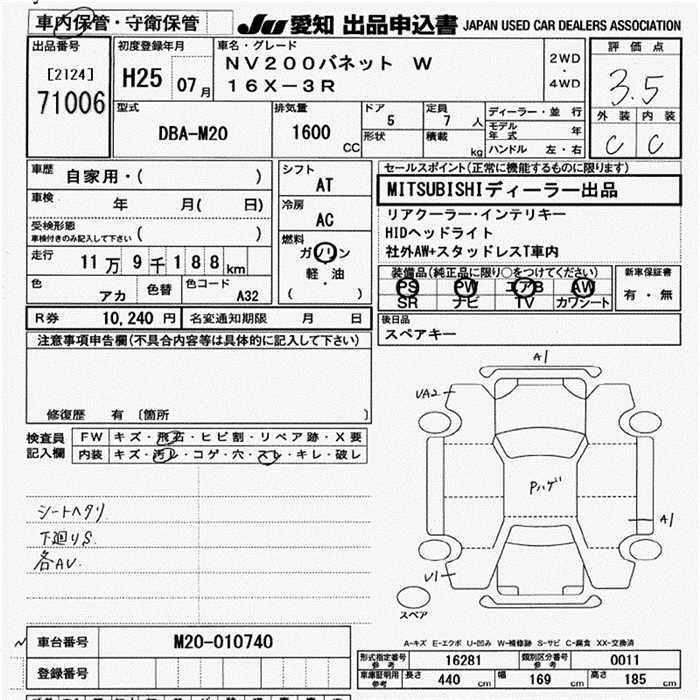 車内保管・守衛保管 JU 愛知 出品申込書 JAPAN USED CAR DEALERS ASSOCIATION
出品番号 [2124] 71006
初度登録年月 H25 07月
車名・グレード NV200バネット W
16X-3R
2WD・4WD
評価点 3.5
外装 内装
C C
型式 DBA-M20
排気量 1600 CC
ドア 5
形状
定員 7 人
積載 kg
ディーラー・並行
モデル年式 年
ハンドル 左・右
車歴 自家用・( )
車検 年 月( 日)
受検形態
車検付きのみ記入して下さい ( )
走行 11万9千188km
色 アカ 色替 色コード A32
シフト AT
冷房 AC
燃料 ガソリン
軽・油
( ・ )
セールスポイント(正常に機能するものに限ります)
MITSUBISHIディーラー出品
リアクーラー・インテリキー
HIDヘッドライト
社外AW+スタッドレスT車内
装備品(純正品に限り○をつけてください)
PS PW エアB AW
SR ナビ TV カワシート
新車保証書
有・無
R券 10,240円 名変通知期限 月 日
後日品
スペアキー
注意事項申告欄(不具合内容等は具体的に記入して下さい)
修復歴 有 〔箇所 〕
検査員記入欄
FW キズ・飛石・ヒビ割・リペア跡・X要
内装 キズ・汚レ・コゲ・穴・スレ・キレ・破レ
シートヘタリ
下廻りS
各AV
A1
UA2
Pハゲ
A1
U1
スペア
A-キズ E-エクボ U-凹み W-補修跡 S-サビ C-腐食 XX-交換済
車台番号 M20-010740
登録番号
形式指定番号参考 16281 類別区分番号参考 0011
車庫証明用参考 長さ 440 cm 幅 169 cm 高さ 185 cm